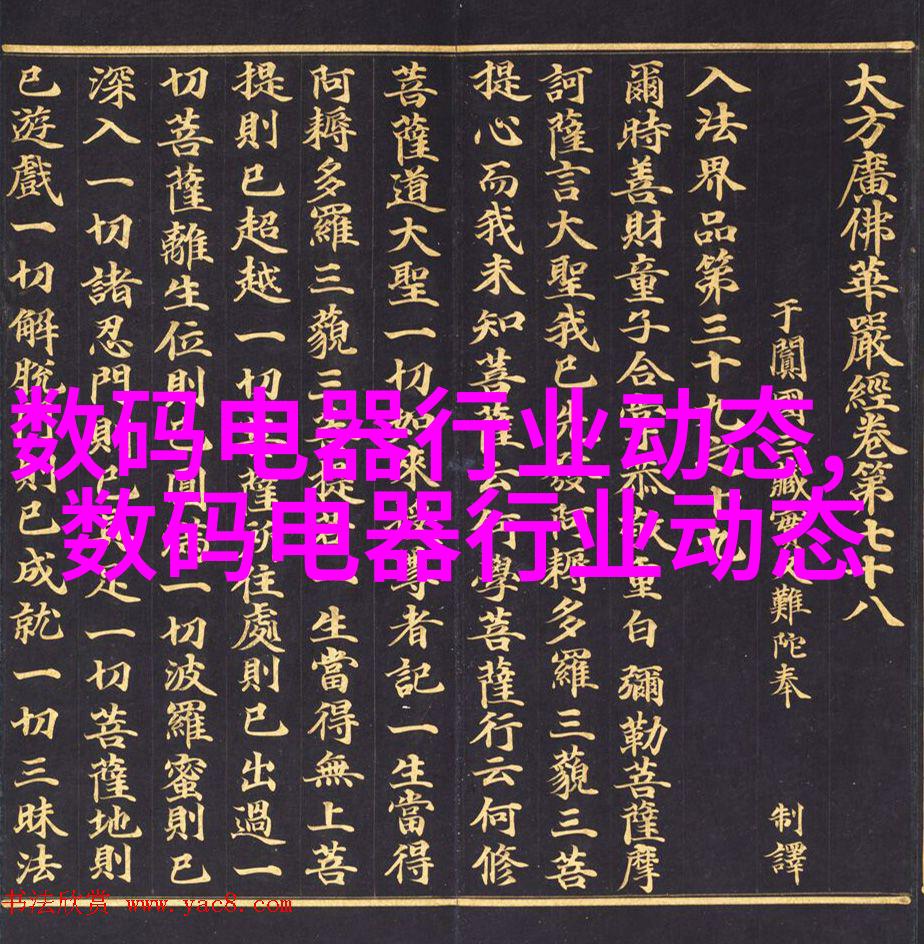 大方廣佛華嚴經卷第七十八
于闐國三藏實叉難陀奉 制譯
入法界品第三十九之十九
爾時善財童子合掌恭敬重白彌勒菩薩摩
訶薩言大聖我已先發阿耨多羅三藐三菩
提心而我未知菩薩云何學菩薩行云何修
菩薩道大聖一切如來授尊者記一生當得
阿耨多羅三藐三菩提若一生當得無上菩
提則已超越一切菩薩所住處則已出過一
切菩薩離生位則已圓滿一切波羅蜜則已
深入一切諸忍門則已具足一切菩薩地則
已遊戲一切解脫門則已成就一切三昧法
数码电器行业动态,
数码电器行业动态
书法欣赏 www.yac8.com